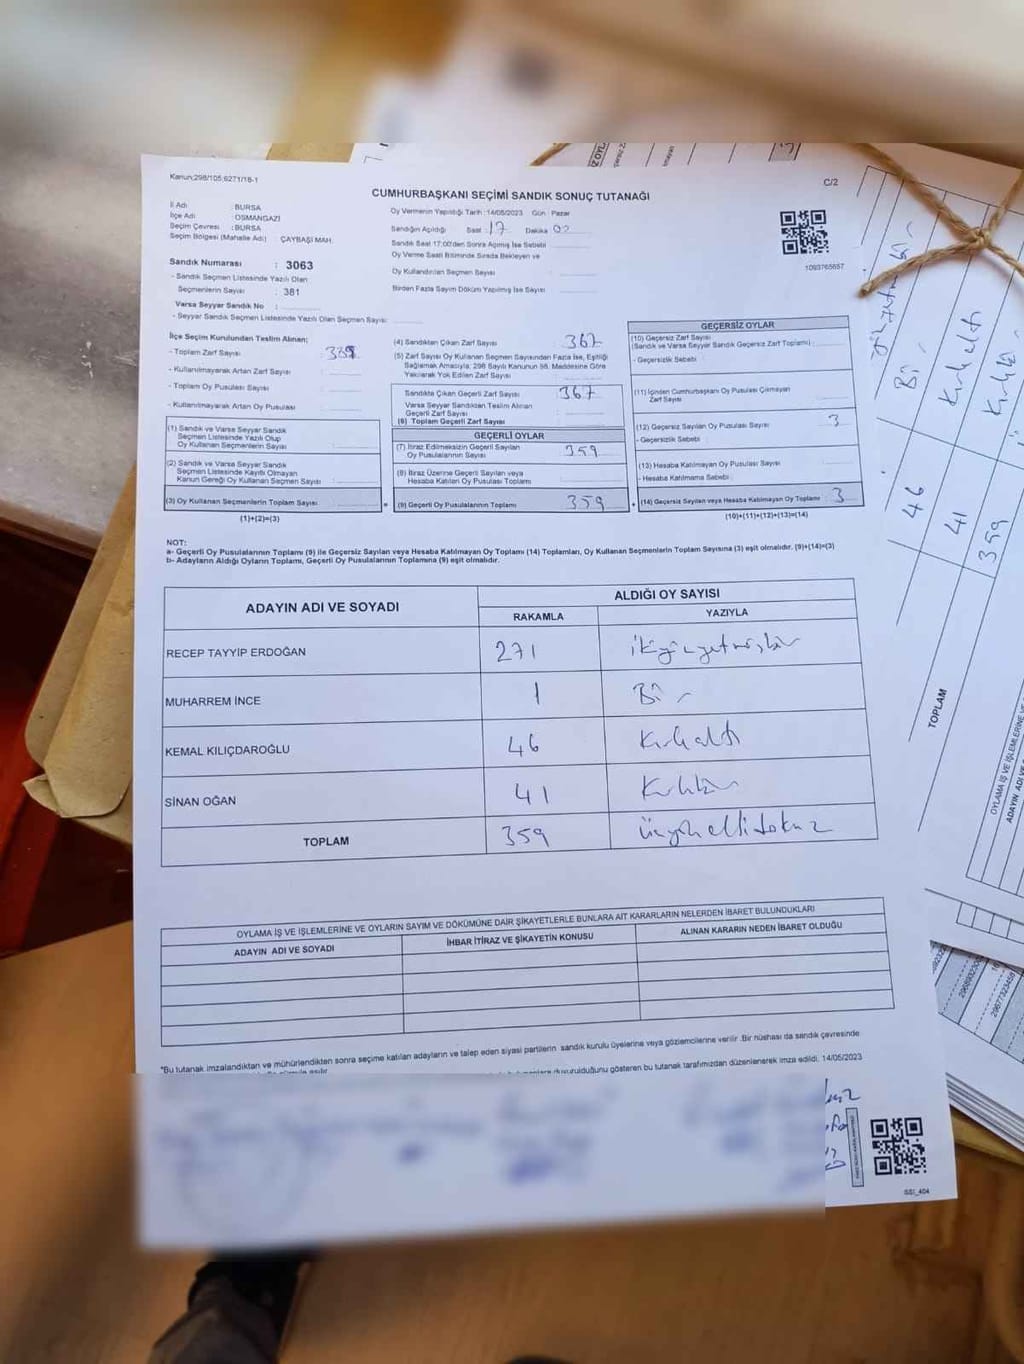 Kanun:298/105;6271/18-1
C/2
CUMHURBAŞKANI SEÇİMİ SANDIK SONUÇ TUTANAĞI
İl Adı : BURSA
İlçe Adı : OSMANGAZİ
Seçim Çevresi : BURSA
Seçim Bölgesi (Mahalle Adı) : ÇAYBAŞI MAH.
Sandık Numarası : 3063
- Sandık Seçmen Listesinde Yazılı Olan
Seçmenlerin Sayısı : 381
Varsa Seyyar Sandık No :
- Seyyar Sandık Seçmen Listesinde Yazılı Olan Seçmen Sayısı :
Oy Vermenin Yapıldığı Tarih : 14/05/2023 Gün : Pazar
Sandığın Açıldığı Saat : 17 Dakika 02
Sandık Saat 17:00'den Sonra Açılmış İse Sebebi :
Oy Verme Saati Bitiminde Sırada Bekleyen ve
Oy Kullandırılan Seçmen Sayısı :
Birden Fazla Sayım Döküm Yapılmış İse Sayısı :
1093765657
İlçe Seçim Kurulundan Teslim Alınan;
- Toplam Zarf Sayısı :
- Kullanılmayarak Artan Zarf Sayısı :
- Toplam Oy Pusulası Sayısı :
- Kullanılmayarak Artan Oy Pusulası :
(1) Sandık ve Varsa Seyyar Sandık
Seçmen Listesinde Yazılı Olup
Oy Kullanan Seçmenlerin Sayısı :
(2) Sandık ve Varsa Seyyar Sandık
Seçmen Listesinde Kayıtlı Olmayan
Kanun Gereği Oy Kullanan Seçmen Sayısı :
(3) Oy Kullanan Seçmenlerin Toplam Sayısı
(1)+(2)=(3)
(4) Sandıktan Çıkan Zarf Sayısı : 367
(5) Zarf Sayısı Oy Kullanan Seçmen Sayısından Fazla İse, Eşitliği
Sağlamak Amacıyla; 298 Sayılı Kanunun 98. Maddesine Göre
Yakılarak Yok Edilen Zarf Sayısı :
Sandıkta Çıkan Geçerli Zarf Sayısı : 367
Varsa Seyyar Sandıktan Teslim Alınan
Geçerli Zarf Sayısı :
(6) Toplam Geçerli Zarf Sayısı
GEÇERLİ OYLAR
(7) İtiraz Edilmeksizin Geçerli Sayılan
Oy Pusulalarının Sayısı : 359
(8) İtiraz Üzerine Geçerli Sayılan veya
Hesaba Katılan Oy Pusulası Toplamı :
(9) Geçerli Oy Pusulalarının Toplamı 359
GEÇERSİZ OYLAR
(10) Geçersiz Zarf Sayısı
(Sandık ve Varsa Seyyar Sandık Geçersiz Zarf Toplamı) :
- Geçersizlik Sebebi :
(11) İçinden Cumhurbaşkanı Oy Pusulası Çıkmayan
Zarf Sayısı :
(12) Geçersiz Sayılan Oy Pusulası Sayısı : 3
- Geçersizlik Sebebi :
(13) Hesaba Katılmayan Oy Pusulası Sayısı :
- Hesaba Katılmama Sebebi :
(14) Geçersiz Sayılan veya Hesaba Katılmayan Oy Toplamı : 3
(10)+(11)+(12)+(13)=(14)
NOT:
a- Geçerli Oy Pusulalarının Toplamı (9) ile Geçersiz Sayılan veya Hesaba Katılmayan Oy Toplamı (14) Toplamları, Oy Kullanan Seçmenlerin Toplam Sayısına (3) eşit olmalıdır. (9)+(14)=(3)
b- Adayların Aldığı Oyların Toplamı, Geçerli Oy Pusulalarının Toplamına (9) eşit olmalıdır.
ADAYIN ADI VE SOYADI
ALDIĞI OY SAYISI
RAKAMLA YAZIYLA
RECEP TAYYİP ERDOĞAN 271 ikiyüzyetmişbir
MUHARREM İNCE 1 Bir
KEMAL KILIÇDAROĞLU 46 Kırkaltı
SİNAN OĞAN 41 Kırkbir
TOPLAM 359 üçyüzellidokuz
OYLAMA İŞ VE İŞLEMLERİNE VE OYLARIN SAYIM VE DÖKÜMÜNE DAİR ŞİKAYETLERLE BUNLARA AİT KARARLARIN NELERDEN İBARET BULUNDUKLARI
ADAYIN ADI VE SOYADI İHBAR İTİRAZ VE ŞİKAYETİN KONUSU ALINAN KARARIN NEDEN İBARET OLDUĞU
"Bu tutanak imzalandıktan ve mühürlendikten sonra seçime katılan adayların ve talep eden siyasi partilerin sandık kurulu üyelerine veya gözlemcilerine verilir .Bir nüshası da sandık çevresinde
duyurulduğunu gösteren bu tutanak tarafımızdan düzenlenerek imza edildi. 14/05/2023
SSİ_404
Bir
Kırkaltı
46
41
359
TOPLAM
OYLAMA İŞ VE İŞLEMLERİNE VE